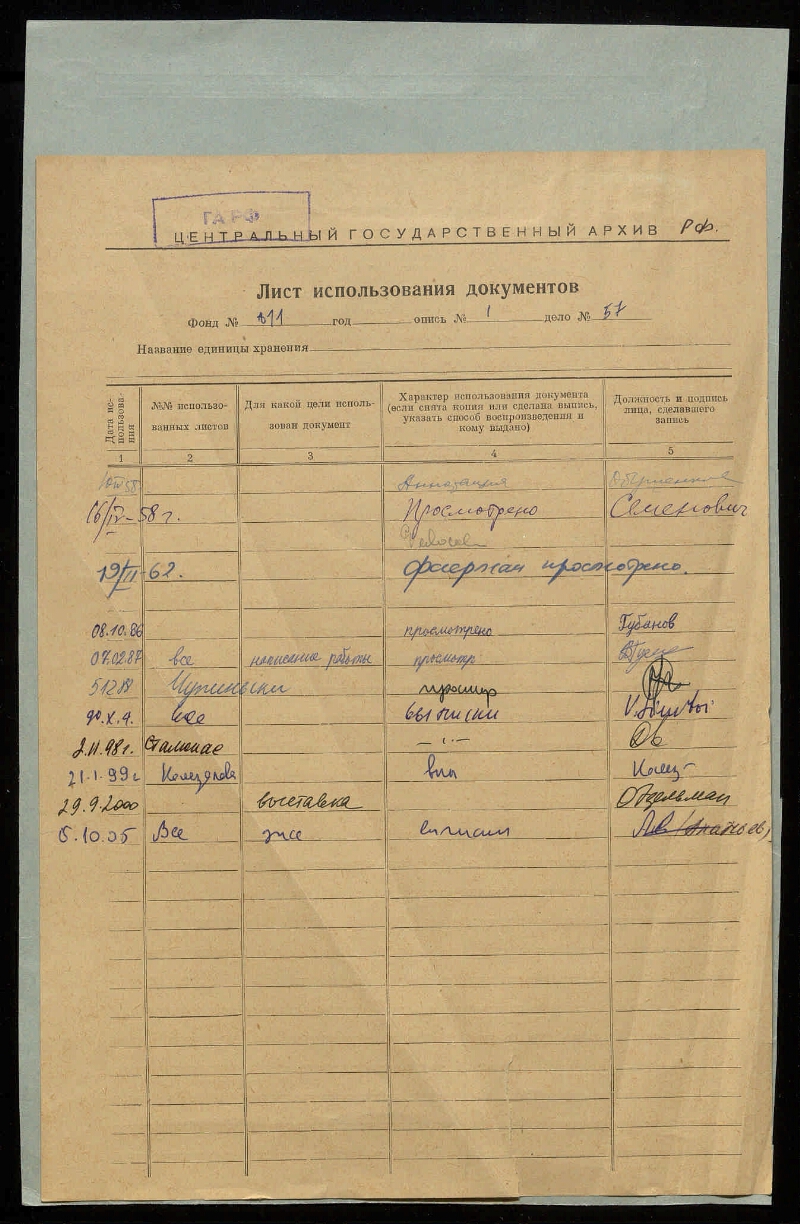 ГА РФ
ЦЕНТРАЛЬНЫЙ ГОСУДАРСТВЕННЫЙ АРХИВ РФ.
Лист использования документов
Фонд № 811 год опись № 1 дело № 57
Название единицы хранения
Дата использования №№ использованных листов Для какой цели использован документ Характер использования документа (если снята копия или сделана выпись, указать способ воспроизведения и кому выдано) Должность и подпись лица, сделавшего запись
1 2 3 4 5
16/IV-58 г. Просмотрено Семенович
19/II-62. просмотрено.
08.10.86 просмотрено Губанов
07.02.87 все написание работы просмотр
все выписки
2.11.98г.
21.1.99г
29.9.2000 выставка
10.05 Все